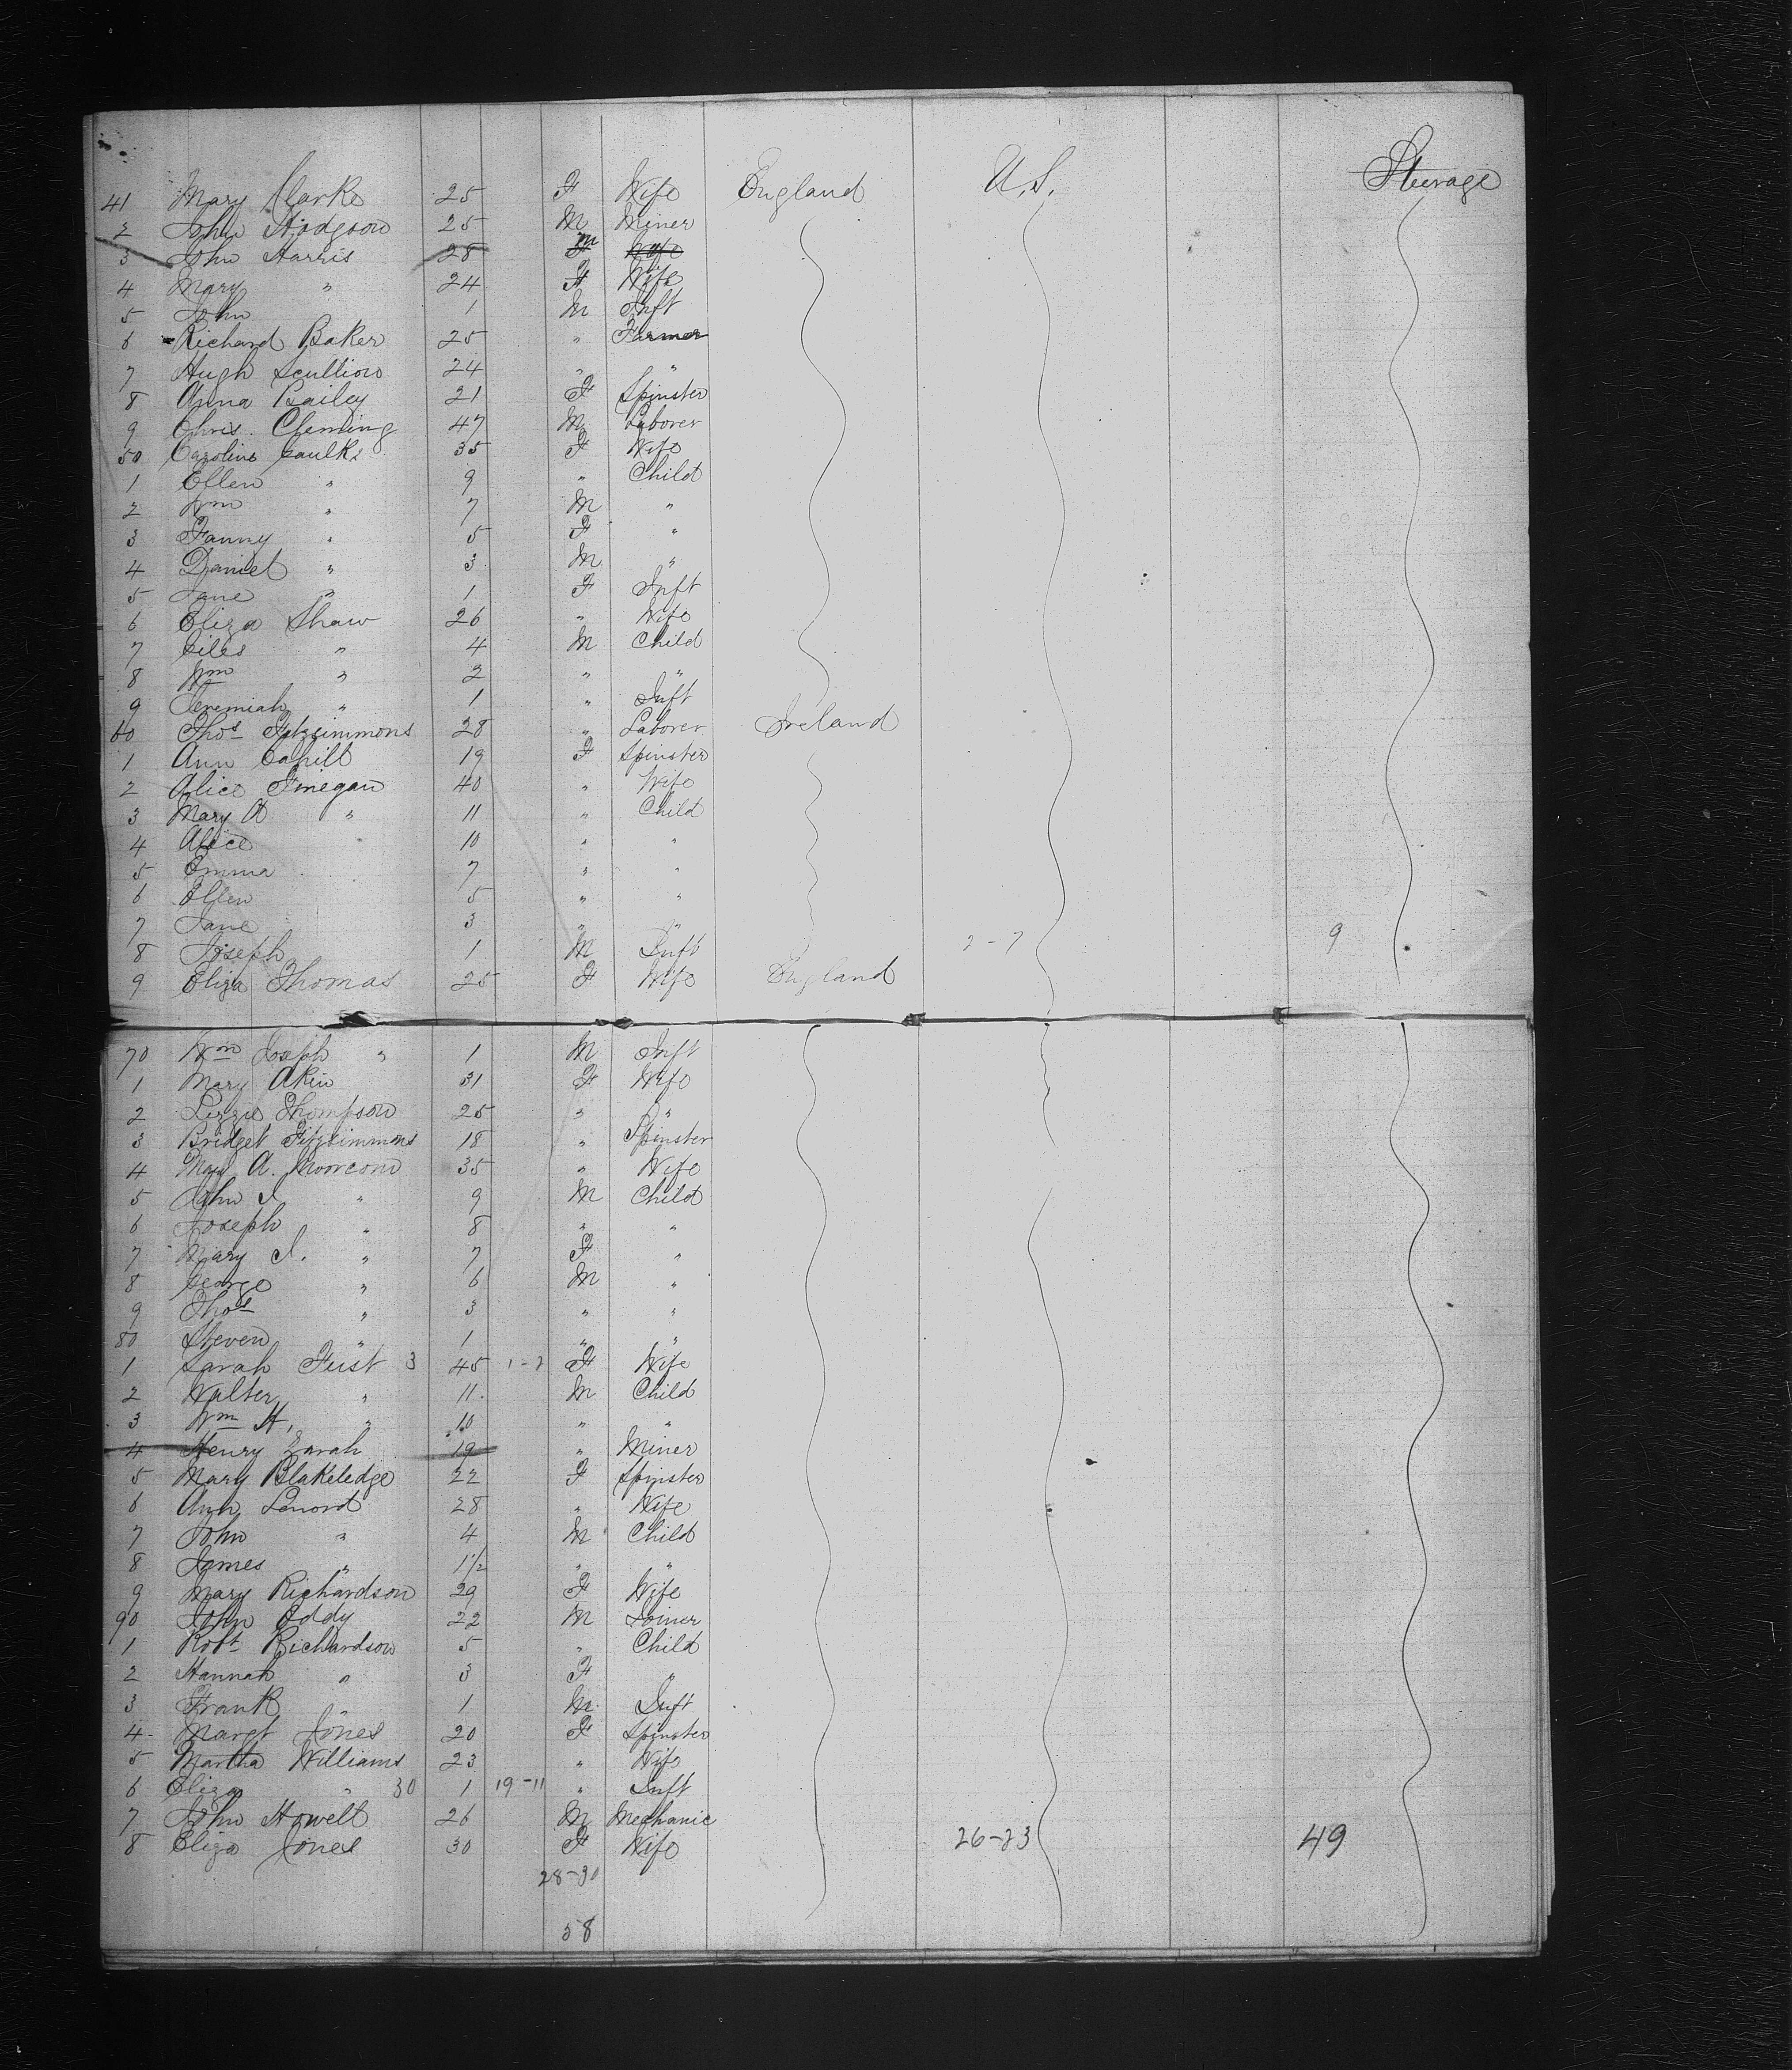 41 Mary Clarke 25 F Wife England U.S. Steerage
2 John Hodgson 25 M Miner
3 John Harris 28 M Wife
4 Mary " 24 F Wife
5 John 1 M Inft
6 Richard Baker 25 " Farmer
7 Hugh Scullion 24 " "
8 Anna Bailey 21 F Spinster
9 Chris. Cleming 47 M Laborer
50 Caroline Faulks 35 F Wife
1 Ellen " 9 " Child
2 Wm " 7 M "
3 Fanny " 5 F "
4 Daniel " 3 M "
5 Jane " 1 F Inft
6 Eliza Shaw 26 " Wife
7 Giles " 4 M Child
8 Wm " 2 " "
9 Jeremiah " 1 " Inft
60 Thos Fitzsimmons 28 " Laborer Ireland
1 Ann Cahill 19 F Spinster
2 Alice Finegan 40 " Wife
3 Mary A " 11 " Child
4 Alice 10 " "
5 Emma 7 " "
6 Ellen 5 " "
7 Jane 3 " "
8 Joseph 1 M Inft 2-7 9
9 Eliza Thomas 25 F Wife England
70 Wm Joseph " 1 M Inft
1 Mary Akin 31 F Wife
2 Lizzie Thompson 25 " "
3 Bridget Fitzsimmons 18 " Spinster
4 Mary A. Moorcom 35 " Wife
5 John J. " 9 M Child
6 Joseph " 8 " "
7 Mary J. " 7 F "
8 George " 6 M "
9 Thos " 3 " "
80 Steven " 1 " "
1 Sarah Fust 3 45 1-2 F Wife
2 Walter " 11 M Child
3 Wm H. " 10 " "
4 Henry Zarah 19 " Miner
5 Mary Blakeledge 22 F Spinster
6 Ann Lenord 28 " Wife
7 John " 4 M Child
8 James " 1½ " "
9 Mary Richardson 29 F Wife
90 John Eddy 22 M Joiner
1 Robt Richardson 5 " Child
2 Hannah " 3 F "
3 Frank " 1 M Inft
4 Margt Jones 20 F Spinster
5 Martha Williams 23 " Wife
6 Eliza " 30 1 19-11 " Inft
7 John Howell 26 M Mechanic
8 Eliza Jones 30 F Wife 26-23 49
28-30
58